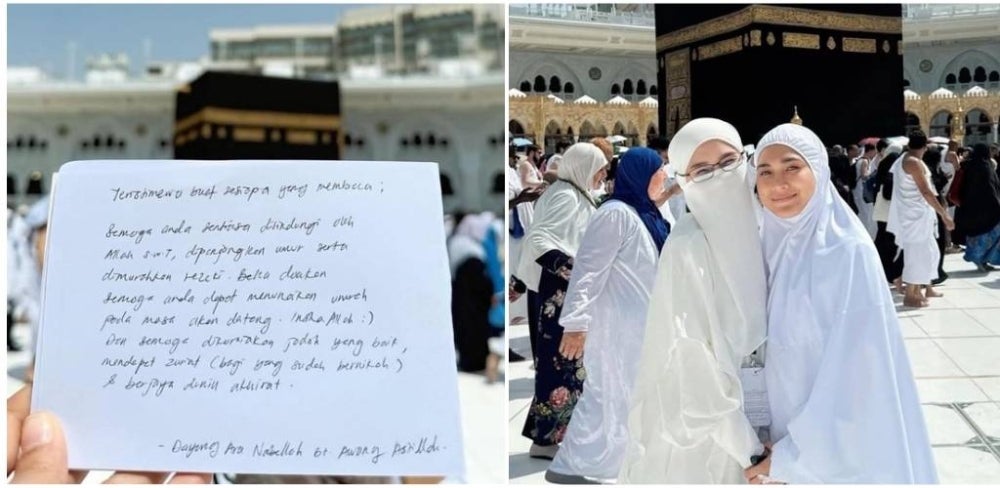 Teristimewa buat sesiapa yang membaca;
Semoga anda sentiasa dilindungi oleh
Allah s.w.T, dipanjangkan umur serta
dimurahkan rezeki. Beliau doakan
Semoga anda dapat menunaikan umrah
pada masa akan datang. InshaAllah :)
Dan semoga dikurniakan jodoh yang baik,
mendapat zuriat (bagi yang sudah bernikah)
& berjaya dunia akhirat.
- Dayang Ara Nabellah bt Awang Astillah.